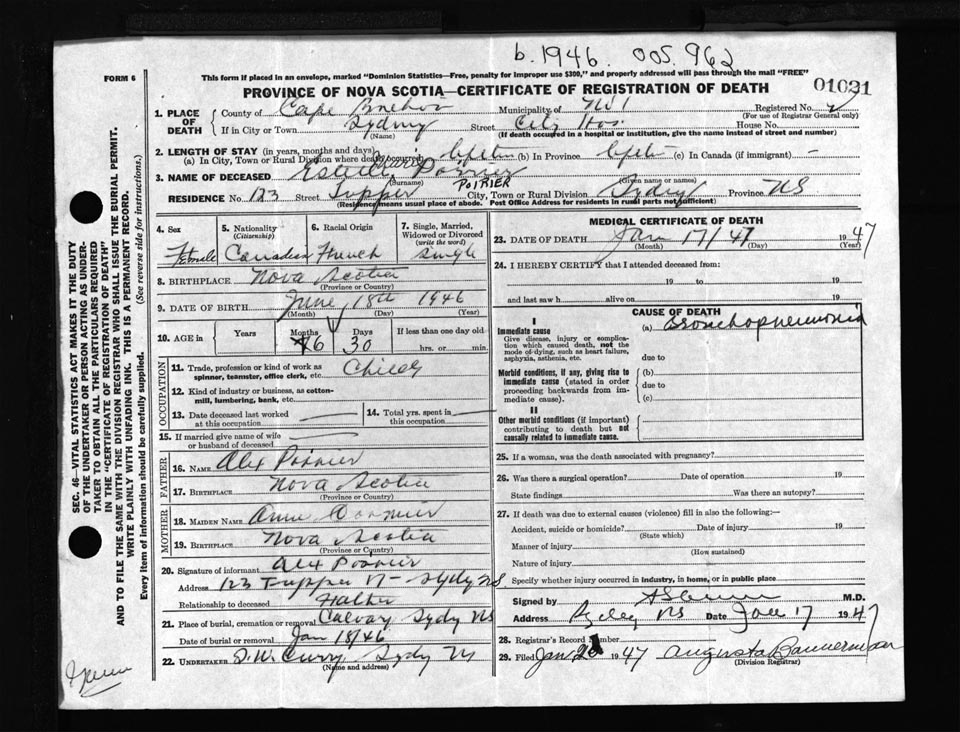 b. 1946. 005. 962
FORM 6
This form if placed in an envelope, marked "Dominion Statistics—Free, penalty for improper use $300," and properly addressed will pass through the mail "FREE"
PROVINCE OF NOVA SCOTIA—CERTIFICATE OF REGISTRATION OF DEATH
01031
1. PLACE OF DEATH County of Cape Breton Municipality of Registered No. 2
(For use of Registrar General only)
If in City or Town Sydney Street City Hos. House No.
(Name) (If death occurred in a hospital or institution, give the name instead of street and number)
2. LENGTH OF STAY (in years, months and days)
(a) In City, Town or Rural Division where death occurred Life (b) In Province Life (c) In Canada (if immigrant) —
3. NAME OF DECEASED Estelle
(Surname) POIRIER (Given name or names)
RESIDENCE No. 123 Street Tupper City, Town or Rural Division Sydney Province NS
(Residence means usual place of abode. Post Office Address for residents in rural parts not sufficient)
4. Sex 5. Nationality (Citizenship) 6. Racial Origin 7. Single, Married, Widowed or Divorced (write the word)
Female Canadian French Single
8. BIRTHPLACE Nova Scotia
(Province or Country)
9. DATE OF BIRTH June 18th 1946
(Month) (Day) (Year)
10. AGE in Years Months Days If less than one day old
6 30 hrs. or min.
OCCUPATION
11. Trade, profession or kind of work as spinner, teamster, office clerk, etc. Child
12. Kind of industry or business, as cotton-mill, lumbering, bank, etc.
13. Date deceased last worked at this occupation
14. Total yrs. spent in this occupation
15. If married give name of wife or husband of deceased
FATHER
16. NAME Alex Poirier
17. BIRTHPLACE Nova Scotia
(Province or Country)
MOTHER
18. MAIDEN NAME Anne
19. BIRTHPLACE Nova Scotia
(Province or Country)
20. Signature of informant Alex Poirier
Address 123 Tupper St Sydney NS
Relationship to deceased Father
21. Place of burial, cremation or removal Calvary Sydney NS
Date of burial or removal Jan 18/46
22. UNDERTAKER D.W. Curry Sydney NS
(Name and address)
MEDICAL CERTIFICATE OF DEATH
23. DATE OF DEATH Jan 17/47 1947
(Month) (Day) (Year)
24. I HEREBY CERTIFY that I attended deceased from:
19 to 19
and last saw h alive on 19
CAUSE OF DEATH
I
Immediate cause (a) Bronchopneumonia
Give disease, injury or complication which caused death, not the mode of dying, such as heart failure, asphyxia, asthenia, etc.
due to
Morbid conditions, if any, giving rise to immediate cause (stated in order proceeding backwards from immediate cause).
(b)
due to
(c)
II
Other morbid conditions (if important) contributing to death but not causally related to immediate cause.
25. If a woman, was the death associated with pregnancy?
26. Was there a surgical operation? Date of operation 19
State findings Was there an autopsy?
27. If death was due to external causes (violence) fill in also the following:—
Accident, suicide or homicide? Date of injury 19
(State which)
Manner of injury
(How sustained)
Nature of injury
Specify whether injury occurred in industry, in home, or in public place
Signed by M.D.
Address Sydney NS Date Jan 17 1947
28. Registrar's Record Number
29. Filed Jan 1947 Augusta Bannerman
(Division Registrar)
SEC. 46—VITAL STATISTICS ACT MAKES IT THE DUTY
OF THE UNDERTAKER OR PERSON ACTING AS UNDER-
TAKER TO OBTAIN ALL THE PARTICULARS REQUIRED
IN THE "CERTIFICATE OF REGISTRATION OF DEATH"
AND TO FILE THE SAME WITH THE DIVISION REGISTRAR WHO SHALL ISSUE THE BURIAL PERMIT.
WRITE PLAINLY WITH UNFADING INK. THIS IS A PERMANENT RECORD.
Every item of information should be carefully supplied. (See reverse side for instructions.)